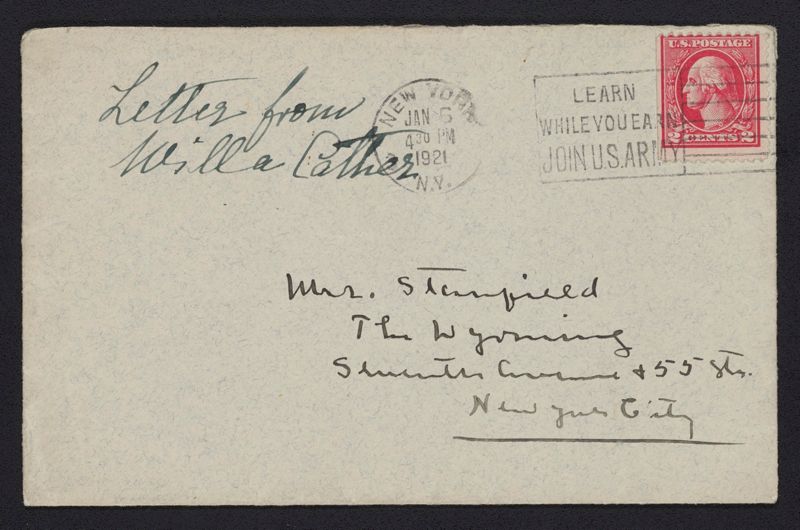 Letter from
Willa Cather
NEW YORK
JAN 5
4 30 PM
1921
N.Y.
LEARN
WHILE YOU EARN
JOIN U.S. ARMY
U.S. POSTAGE
2 CENTS 2
Mrs. Stanfield
The Wyoming
Seventh Avenue & 55 Sts.
New York City